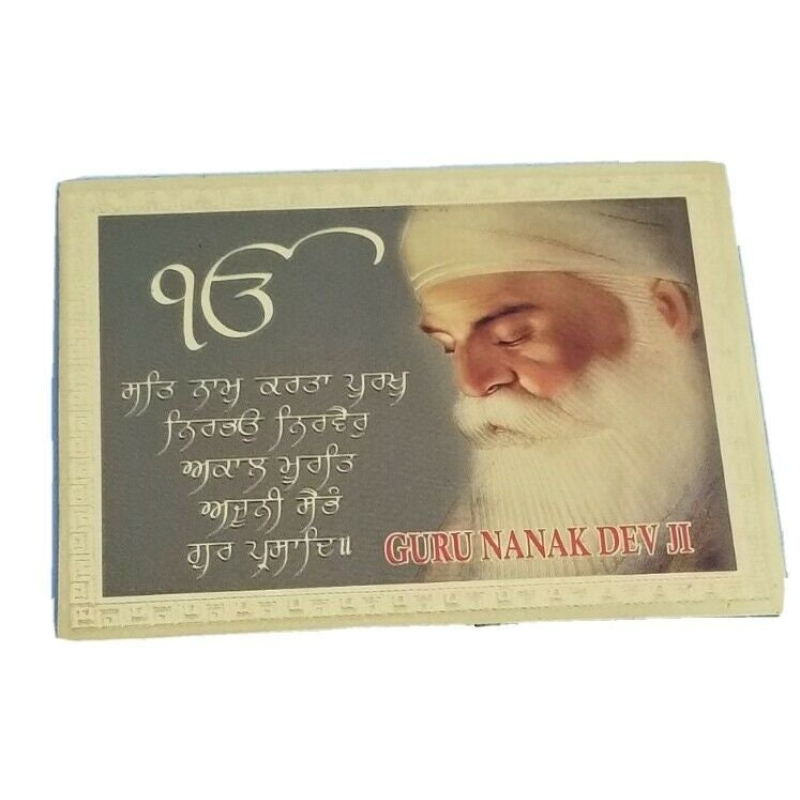 ੴ
ਸਤਿ ਨਾਮੁ ਕਰਤਾ ਪੁਰਖੁ
ਨਿਰਭਉ ਨਿਰਵੈਰੁ
ਅਕਾਲ ਮੂਰਤਿ
ਅਜੂਨੀ ਸੈਭੰ
ਗੁਰ ਪ੍ਰਸਾਦਿ॥
GURU NANAK DEV JI